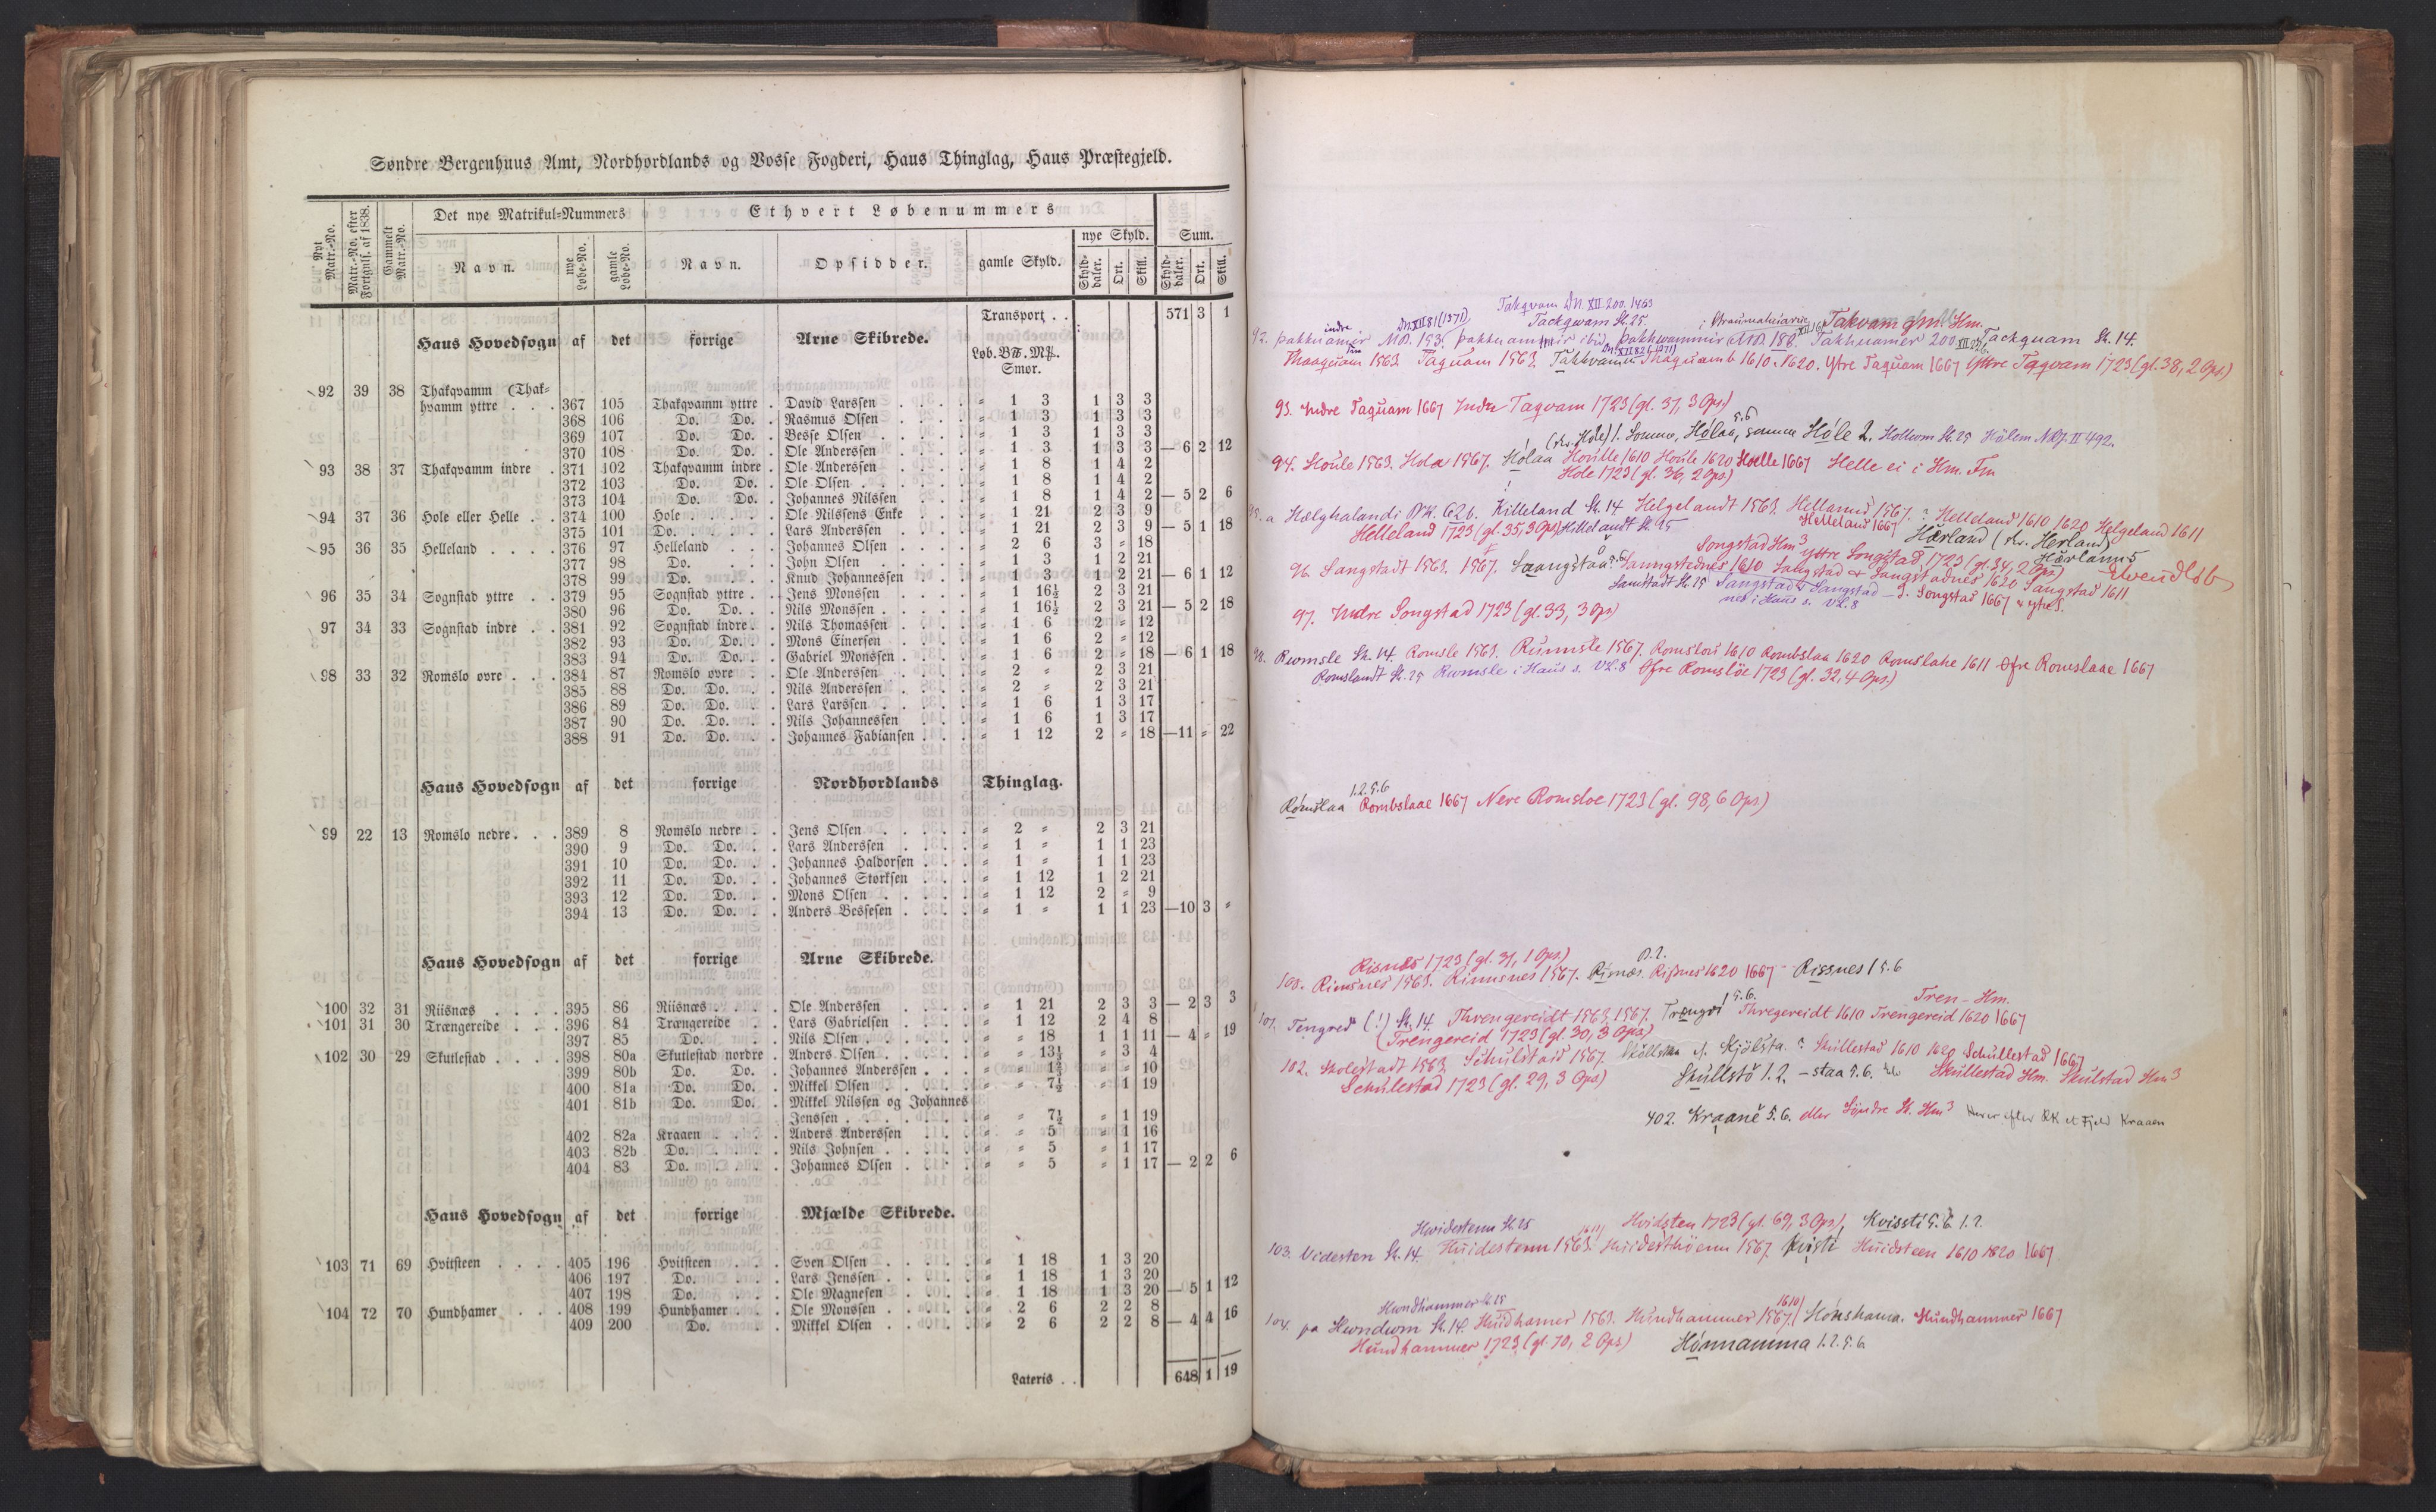 Søndre Bergenhuus Amt, Nordhordlands og Vosse Fogderi, Haus Thinglag, Haus Præstegjeld.
Nyt Matr.-No. | Matr.-No. efter Fortgnls. af 1838. | Gammelt Matr.-No. | Det nye Matrikul-Nummers | Ethvert Løbenummers
Navn. | nye Løbe-No. | gamle Løbe-No. | Navn. | Opsidder. | gamle Skyld. | nye Skyld. | Sum.
Skylddaler. | Ort. | Skill. | Skylddaler. | Ort. | Skill.
Transport . . 571 3 1
Haus Hovedsogn af det forrige Arne Skibrede.
Løb. B℔. M℔.
Smør.
92 39 38 Thakqvamm (Thak-
hvamm yttre . . . 367 105 Thakqvamm yttre . David Larssen . . . . = 1 3 1 3 3
368 106 Do. Do. . Rasmus Olsen . . . . = 1 3 1 3 3
369 107 Do. Do. . Besse Olsen . . . . . = 1 3 1 3 3
370 108 Do. Do. . Ole Anderssen . . . . = 1 3 1 3 3 — 6 2 12
93 38 37 Thakqvamm indre . 371 102 Thakqvamm indre . Ole Anderssen . . . . = 1 8 1 4 2
372 103 Do. Do. . Ole Olsen . . . . . = 1 8 1 4 2
373 104 Do. Do. . Johannes Nilssen . . . = 1 8 1 4 2 — 5 2 6
94 37 36 Hole eller Helle . . 374 100 Hole . . . . . Ole Nilssens Enke . . . = 1 21 2 3 9
375 101 Do. . . . . . Lars Anderssen . . . . = 1 21 2 3 9 — 5 1 18
95 36 35 Helleland . . . . 376 97 Helleland . . . Johannes Olsen . . . . = 2 6 3 = 18
377 98 Do. . . . John Olsen . . . . . = 1 3 1 2 21
378 99 Do. . . . Knud Johannessen . . . = 1 3 1 2 21 — 6 1 12
96 35 34 Sognstad yttre . . 379 95 Sognstad yttre . . Jens Monssen . . . . = 1 16½ 2 3 21
380 96 Do. Do. . . Nils Monssen . . . . . = 1 16½ 2 3 21 — 5 2 18
97 34 33 Sognstad indre . . 381 92 Sognstad indre . . Nils Thomassen . . . . = 1 6 2 = 12
382 93 Do. Do. . . Mons Einersen . . . . = 1 6 2 = 12
383 94 Do. Do. . . Gabriel Monssen . . . . = 1 6 2 = 18 — 6 1 18
98 33 32 Romslo øvre . . . 384 87 Romslo øvre . . Ole Anderssen . . . . = 2 = 2 3 21
385 88 Do. Do. . . Nils Anderssen . . . . = 2 = 2 3 21
386 89 Do. Do. . . Lars Larssen . . . . . = 1 6 1 3 17
387 90 Do. Do. . . Nils Johannessen . . . = 1 6 1 3 17
388 91 Do. Do. . . Johannes Fabiansen . . . = 1 12 2 = 18 — 11 = 22
Haus Hovedsogn af det forrige Nordhordlands Thinglag.
99 22 13 Romslo nedre . . . 389 8 Romslo nedre . . Jens Olsen . . . . . = 2 = 2 3 21
390 9 Do. Do. . . Lars Anderssen . . . . = 1 = 1 1 23
391 10 Do. Do. . . Johannes Haldorsen . . . = 1 = 1 1 23
392 11 Do. Do. . . Johannes Storksen . . . = 1 12 1 2 21
393 12 Do. Do. . . Mons Olsen . . . . . = 1 12 2 = 9
394 13 Do. Do. . . Anders Bessesen . . . . = 1 = 1 1 23 — 10 3 =
Haus Hovedsogn af det forrige Arne Skibrede.
100 32 31 Riisnæs . . . . 395 86 Riisnæs . . . . Ole Anderssen . . . . = 1 21 2 3 3 — 2 3 3
101 31 30 Trængereide . . . 396 84 Trængereide . . Lars Gabrielsen . . . . = 1 12 2 4 8
397 85 Do. . . Nils Olsen . . . . . = = 18 1 1 11 — 4 = 19
102 30 29 Skutlestad . . . . 398 80a Skutlestad nordre . Anders Olsen . . . . . = = 13½ = 3 4
399 80b Do. Do. . Johannes Anderssen . . . = = 1⅔ = = 10
400 81a Do. Do. . Mikkel Olsen . . . . . = = 7½ = 1 19
401 81b Do. Do. . Mikkel Nilssen og Johannes
Jenssen . . . . . . = = 7½ = 1 19
402 82a Kraaen . . . . Anders Anderssen . . . = = 5 = 1 16
403 82b Do. . . . . Nils Johnsen . . . . . = = 5 = 1 17
404 83 Do. . . . . Johannes Olsen . . . . = = 5 = 1 17 — 2 2 6
Haus Hovedsogn af det forrige Mjælde Skibrede.
103 71 69 Hvitsteen . . . . 405 196 Hvitsteen . . . Sven Olsen . . . . . = 1 18 1 3 20
406 197 Do. . . . Lars Jenssen . . . . . = 1 18 1 3 20
407 198 Do. . . . Ole Magnesen . . . . = 1 18 1 3 20 — 5 1 12
104 72 70 Hundhamer . . . 408 199 Hundhamer . . . Ole Monssen . . . . . = 2 6 2 2 8
409 200 Do. . . . Mikkel Olsen . . . . . = 2 6 2 2 8 — 4 4 16
Lateris . . 648 1 19
Takqvam DN. XII. 200. 1463
indre DN XII 81 (1371) Tackqwam St. 25. Takvam Hm.
92. þakkuamer MD. 153. þakkuam ibid. þakkwammir MD. 186. Takhuamer 200 Tackquam St. 14.
Thaaquam 1563 Taquam 1563. Takkvamm Thaquamb 1610-1620. Ytre Taquam 1667 Yttre Taqvam 1723 (gl. 38, 2 Ops.)
93. Indre Taquam 1667 Indre Taqvam 1723 (gl. 37, 3 Ops.)
(skr. Hole) 1. Somme, Hólaa, 5.6 somme Hóle 2. Hollwm St. 25 Hólem NRJ. II 492.
94. Houle 1563. Hola 1567. Hólaa Houlle 1610 Houle 1620 Hoelle 1667 Helle ei i Hm. Fm
Hole 1723 (gl. 36, 2 Ops.)
95. a Hælghalandi BK. 62b. Killeland St. 14 Helgelandt 1563. Helland 1567. ? Helleland 1610 1620 Helgeland 1611
Helleland 1723 (gl. 35, 3 Ops) Hillelandt St. 25 Helleland 1667 Hærland (skr. Herland)
Songstad Hm³ yttre Songstad 1723 (gl. 34, 2 Ops) Hærlann 5
96. Sangstadt 1563. 1567. Saangstaa 5.6 Saungstednes 1610 Sangstad & Sangstadnes 1620 Sangstad 1611
Sanstadt St. 25 Sangstad & Sangstad- I. Songstad 1667 & ytre S.
nes i Haus s. VL. 8
97. Indre Songstad 1723 (gl. 33, 3 Ops)
98. Rwmsle St. 14. Romsle 1563. Rumsle 1567. Romslou 1610 Rombslaa 1620 Romslahe 1611 Øfre Romslaae 1667
Romslandt St. 25 Rwmsle i Haus s. VL. 8 Øfre Romsløe 1723 (gl. 32, 4 Ops.)
1.2.5.6
Rómslaa Rombslaae 1667 Nere Romsloe 1723 (gl. 98, 6 Ops.)
Risnes 1723 (gl. 31, 1 Ops.)
100. Rimsnes 1563. Rimmsnes 1567. Risnæs. Rissnes 1620 1667 Rissnes 1 5.6
Tren- Hm.
101. Tengred (!) St. 14. Threngereidt 1563, 1567. Trengrei 1 5.6. Thregereidt 1610 Trengereid 1620 1667
Trengereid 1723 (gl. 30, 3 Ops.)
102. Skolestadt 1563. Schulstaid 1567. Skóllstaa Skjólsta. ? Skullestad 1610 1620 Schullestad 1667
Schulestad 1723 (gl. 29, 3 Ops) Skullstó 1.2. -staa 5.6. Skullestad Hm. Skulstad Hm³
402. Kraane 5.6. eller Søndre St. Hm³ Herer efter OK et Fjeld Kraaen
Hwidestenn St. 25 Hvidsten 1723 (gl. 69, 3 Ops), Kvissti 5.6 1.2.
103. Videsten St. 14. Huidestenn 1563. Huidesthöenn 1567. Kvisti Huidsteen 1610 1620 1667
Hwndhammer St. 25 1610
104. pa Hwndwm St. 14. Hudhamer 1563. Hundhammer 1567. Hónshama. Hundhammer 1667
Hundhammer 1723 (gl. 70, 2 Ops) Hónnamma 1.2.5.6